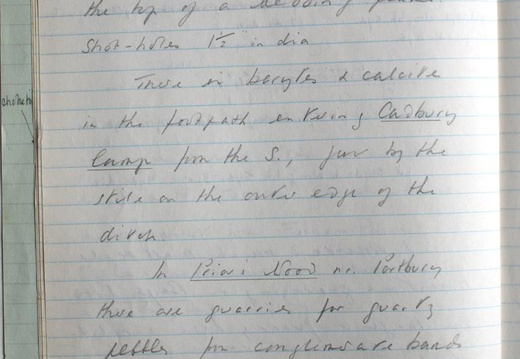 the top of a bedding plane.
shot-holes 1½" in dia
There is barytes & calcite
in the footpath entering Cadbury
Camp from the S., just by the
stile on the outer edge of the
ditch.
In Prior's Wood nr. Portbury
there are quarries for quartz
pebbles from conglomerate bands